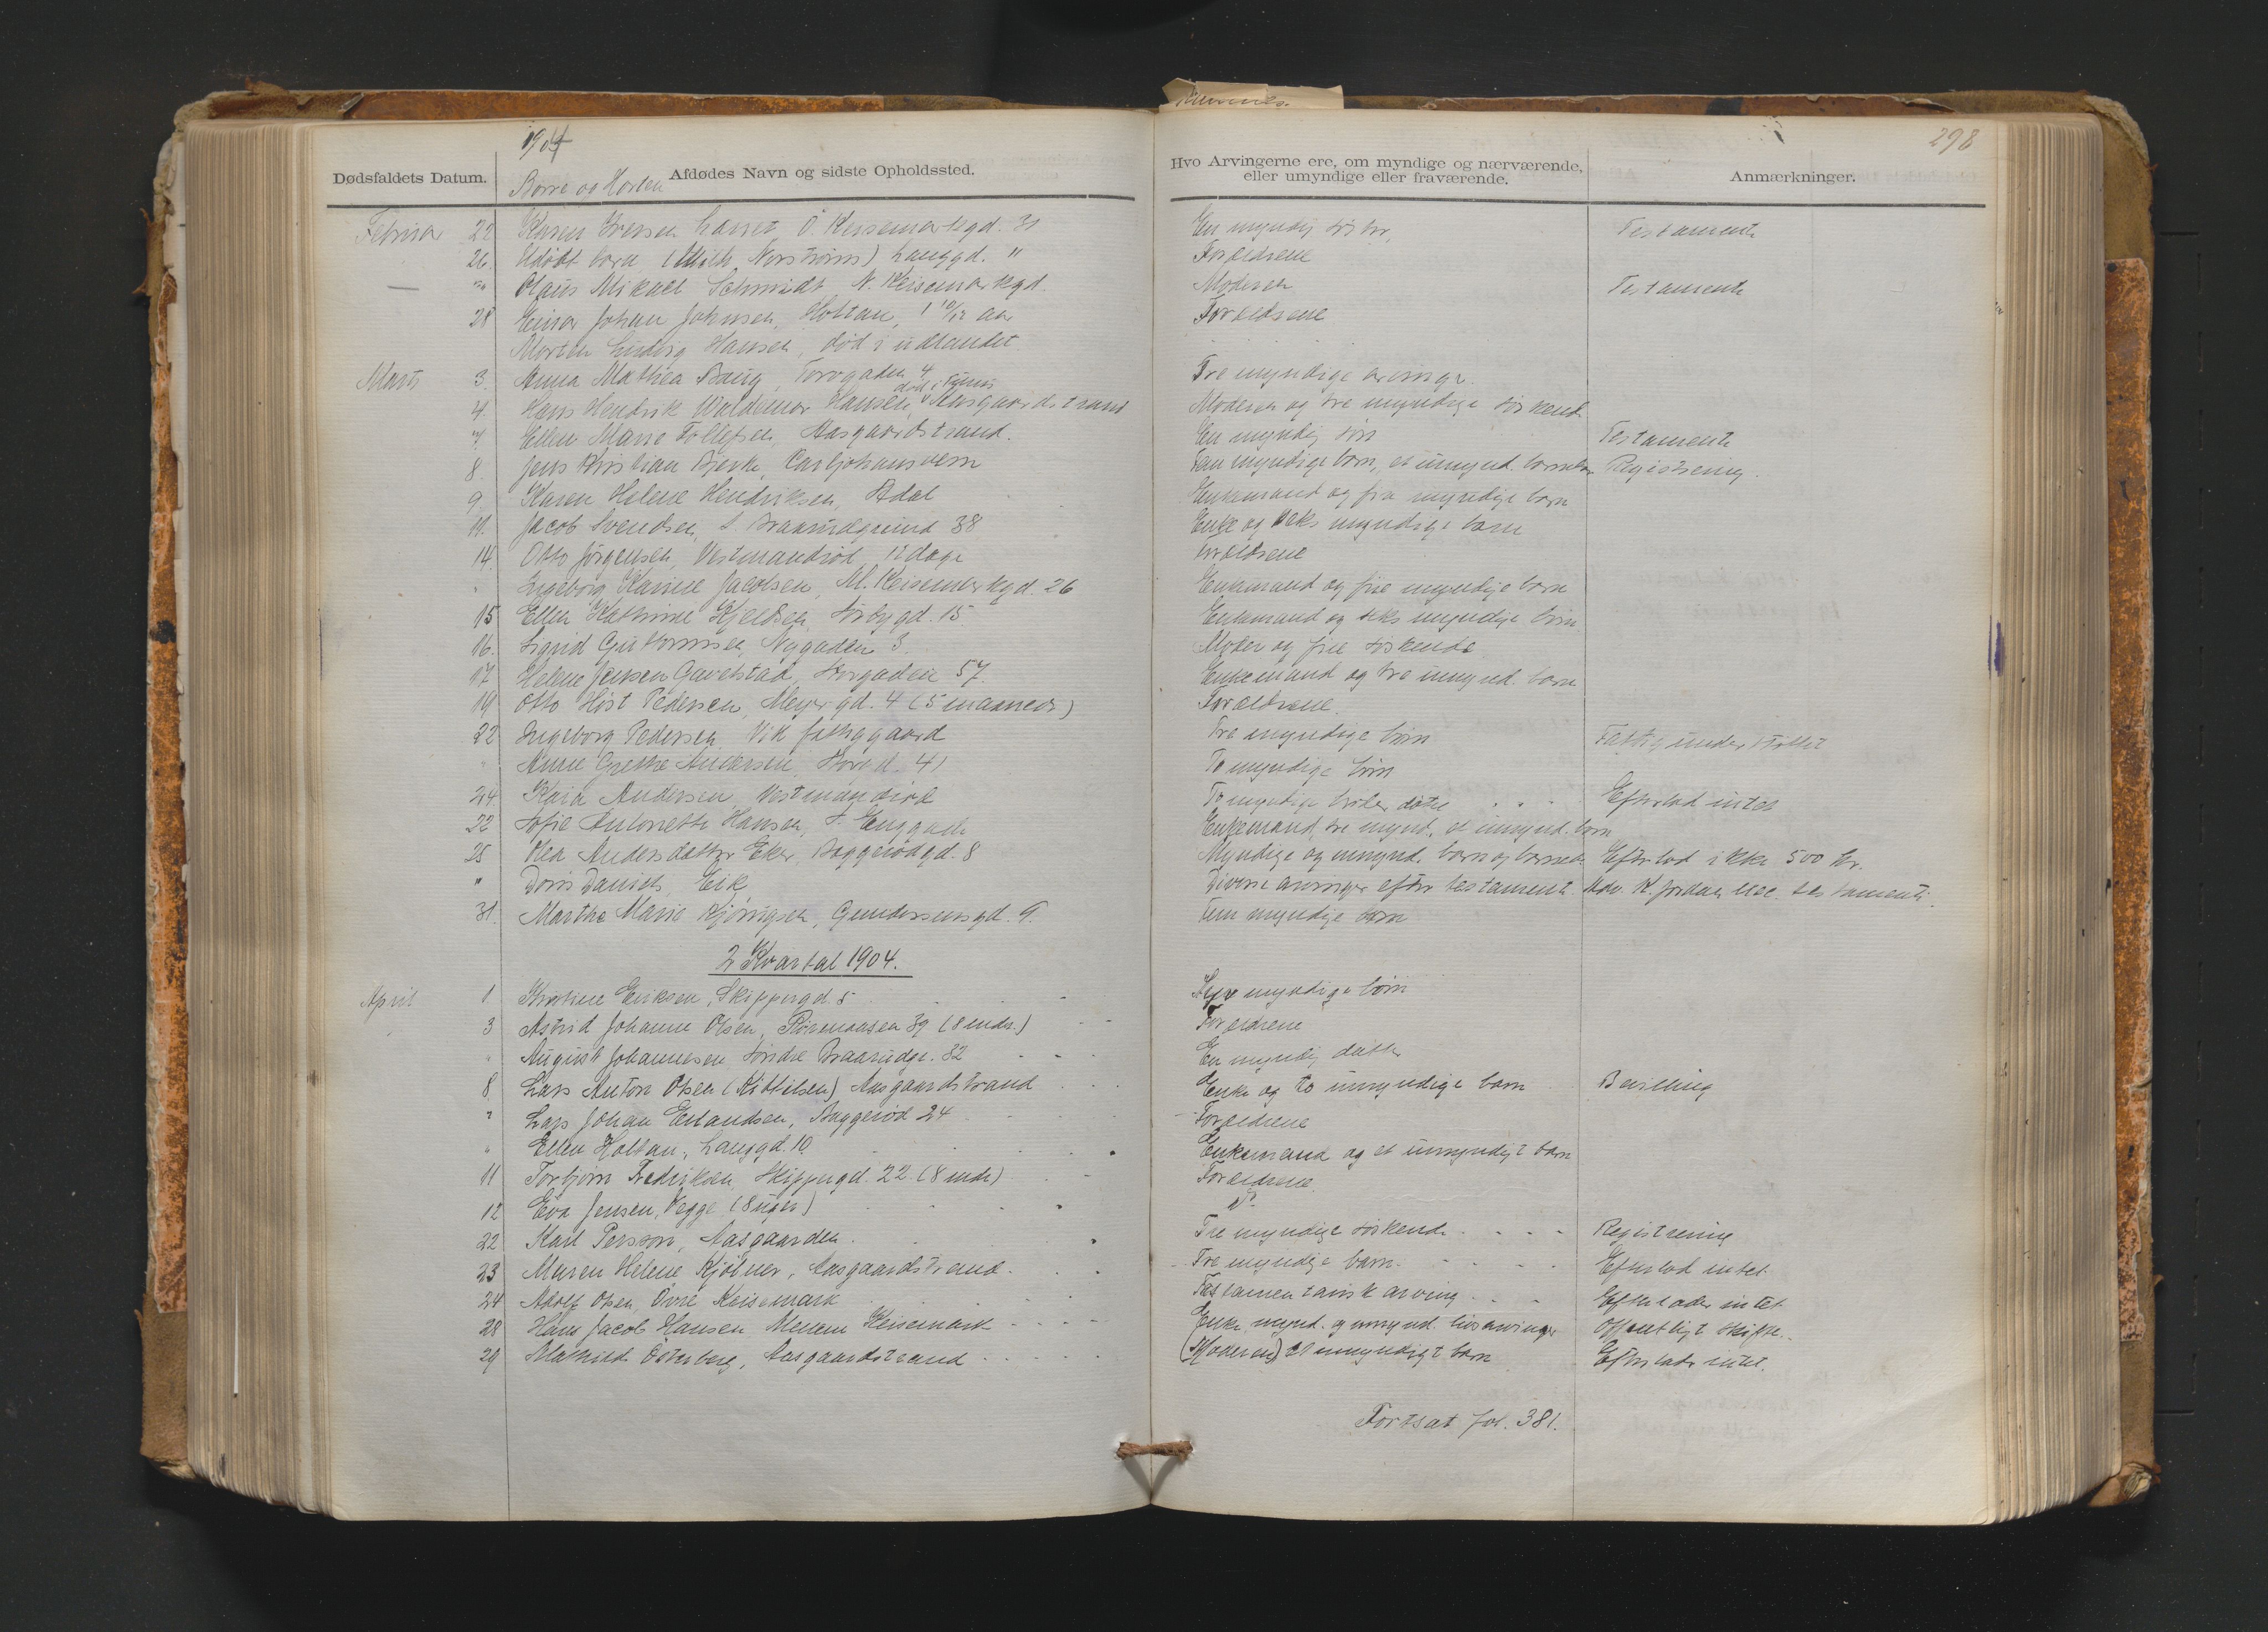 298
1904
Dødsfaldets Datum. Afdødes Navn og sidste Opholdssted. Hvo Arvingerne ere, om myndige og nærværende, eller umyndige eller fraværende. Anmærkninger.
Borre og Horten
Februar 22 Karen Iversen O. Keisemarkgd. 31 En myndig Testamente
26. Udøbt barn Langgd. " Forældrene
— " Olaus Mikael Schmidt N. Keisemarkgd. Moderen Testamente
28 Einar Johan Johnsen, Holtan, 1 10/12 aar Forældrene
Morten Ludvig Hansen, død i udlandet
Marts 3. Anna Mathea Torvgaden 4 Tre myndige arvinger.
død i Tunis
4. Hans Hendrik Waldemar Hansen, Aasgaardstrand Moderen og tre myndige søskende
7. Ellen Marie Tollefsen, Aasgaardstrand. En myndig søn Testamente
8. Jens Kristian Bjerke, Carljohansvern Fem myndige børn, et umynd. barnebarn Registrering.
9. Karen Helene Hendriksen, Adal Enkemand og fire myndige børn
11. Jacob Svendsen, S. Braarudgrund 38 Enke og seks myndige børn
14. Otto Jørgensen, Vestmandrød, 12 dage Forældrene
" Ingeborg Karine Jacobsen, Ml. Keisemarkgd. 26 Enkemand og fire myndige børn
15 Ellen Kathrine Kjeldsen, gd. 15 Enkemand og seks myndige børn
16. Sigrid Guttormsen, Nygaden 3. Moder og fire søskende
17 Helene Jensen Gavelstad, Storgaden 57. Enkemand og tre umynd. børn
19 Otto Høst Pedersen, Meyergd. 4 (5 maaneder) Forældrene.
22 Ingeborg Pedersen Vik fattiggaard Tre myndige børn Fattigunderstøttet
" Anne Grethe Andersen, 41 To myndige børn
24. Kaia Andersen, Vestmandrød To myndige døtre Efterlod intet
22 Sofie Antonette Hansen, S. Enggade Enkemand, tre mynd., et umynd. barn
25 Olea Andersdatter Eker, Baggerødgd. 8 Myndige og umynd. børn og børnebørn Efterlod ikke 500 kr.
" Doris Daniels, Eik Diverse arvinger efter testamente Adv. K. Jordan testamente.
31. Marthe Marie Gundersensgd. 9. Fem myndige børn
2 Kvartal 1904.
April 1 Kristine Eriksen, Skippergd. 5 myndige børn
3 Astrid Johanne Olsen, 39 (8 mdr.) Forældrene
" August Johannesen Søndre Braarudgr. 32 En myndig datter
8 Lars Anton Olsen (Kittilsen) Aasgaardstrand Enke og to umyndige børn Bevilling
" Lars Johan Erlandsen, Baggerød 24 Forældrene
" Ellen Holtan, Langgd. 10 Enkemand og et umyndigt barn
11 Torbjørn Fredriksen, Skippergd. 22 (8 mdr) Forældrene.
12 Eva Jensen, Vegge (8 uger) do
22 Karl Persson, Aasgaarden Tre myndige søskende Registrering
23 Maren Helene Kjølner, Aasgaardstrand Tre myndige børn Efterlod intet
24 Adolf Olsen, Øvre Keisemark Testamentarisk arving Efterlader intet
28 Hans Jacob Hansen Mellem Keisemark Enke mynd. og umynd. livsarvinger Offentligt skifte.
29 Mathilde Österberg, Aasgaardstrand (Moderen) et umyndigt barn Efterlader intet.
Fortsat fol. 381.